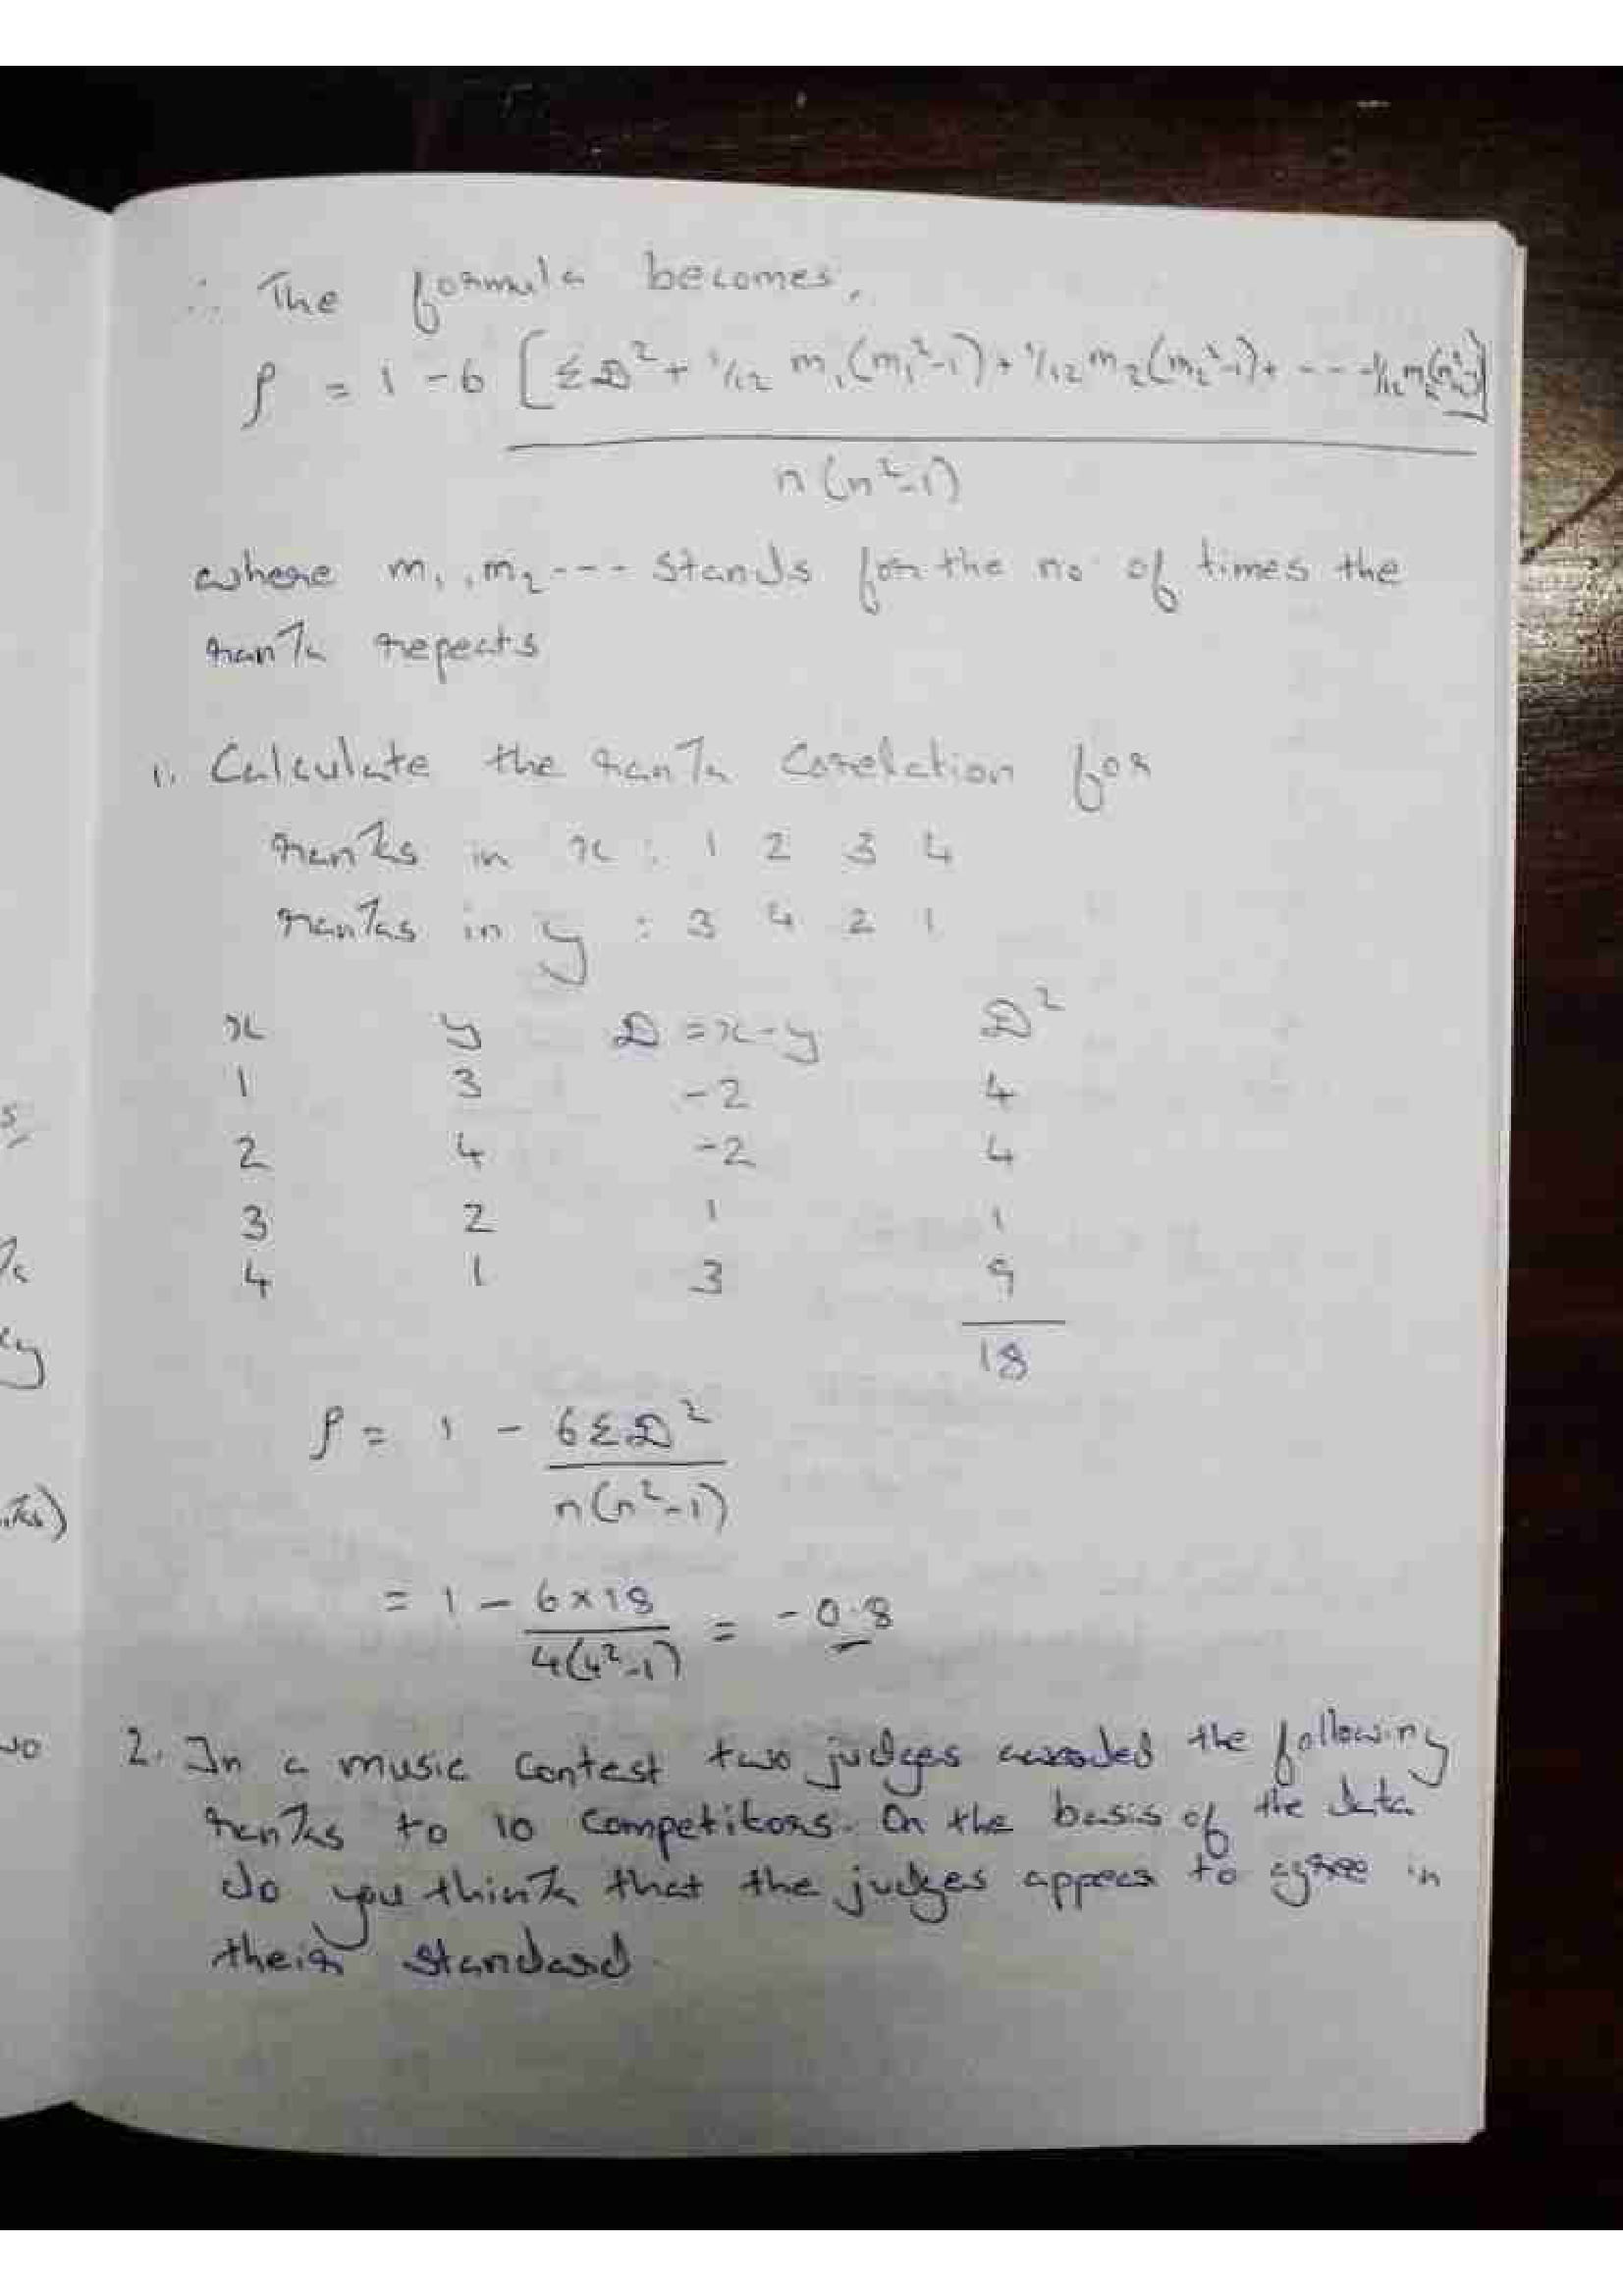 ∴ The formula becomes,
ρ = 1 - 6 [ΣD² + 1/12 m₁(m₁²-1) + 1/12 m₂(m₂²-1) + --- 
n(n²-1)
where m₁, m₂ --- stands for the no of times the
rank repects
1. Calculate the rank Corelation for
ranks in x : 1 2 3 4
ranks in y : 3 4 2 1
x y D = x-y D²
1 3 -2 4
2 4 -2 4
3 2 1 1
4 1 3 9
18
ρ = 1 - 6ΣD²
n(n²-1)
= 1 - 6×18 = -0.8
4(4²-1)
2. In a music Contest two judges the following
ranks to 10 Competitors. On the basis of the data
do you think that the judges appear to agree in
their standard.